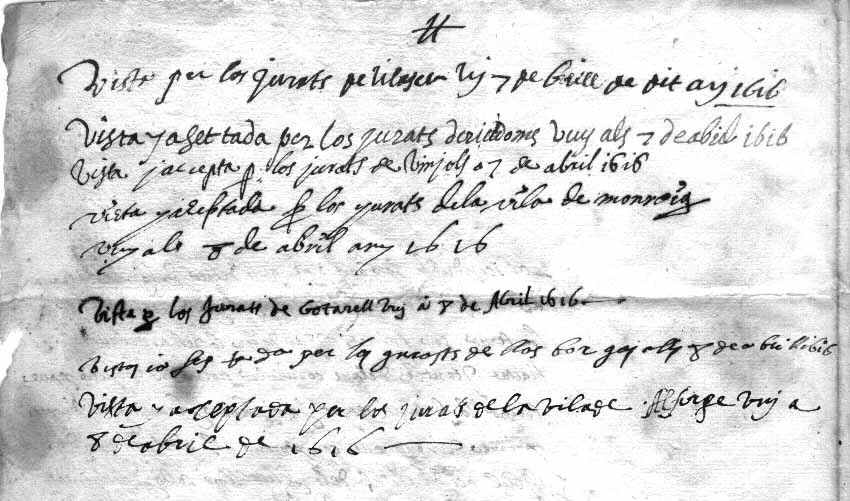 Vista per los jurats de vilaseca vuy 7 de abrill de dit any 1616
Vista y asettada per los jurats de riudoms vuy als 7 de abril 1616
Vista j accepta p los jurats de vinjols a 7 de abril 1616
vista y aseptada p los jurats de la vila de monroig
vuy als 8 de abril any 1616
Vista p los Jurats de Botarell vuy â 8 de Abril 1616
Vista i per los jurats de les bor 8 de abrill 1616
Vista y aseptada per los jurats de la vila de Alforge vuy a
8 de abril de 1616